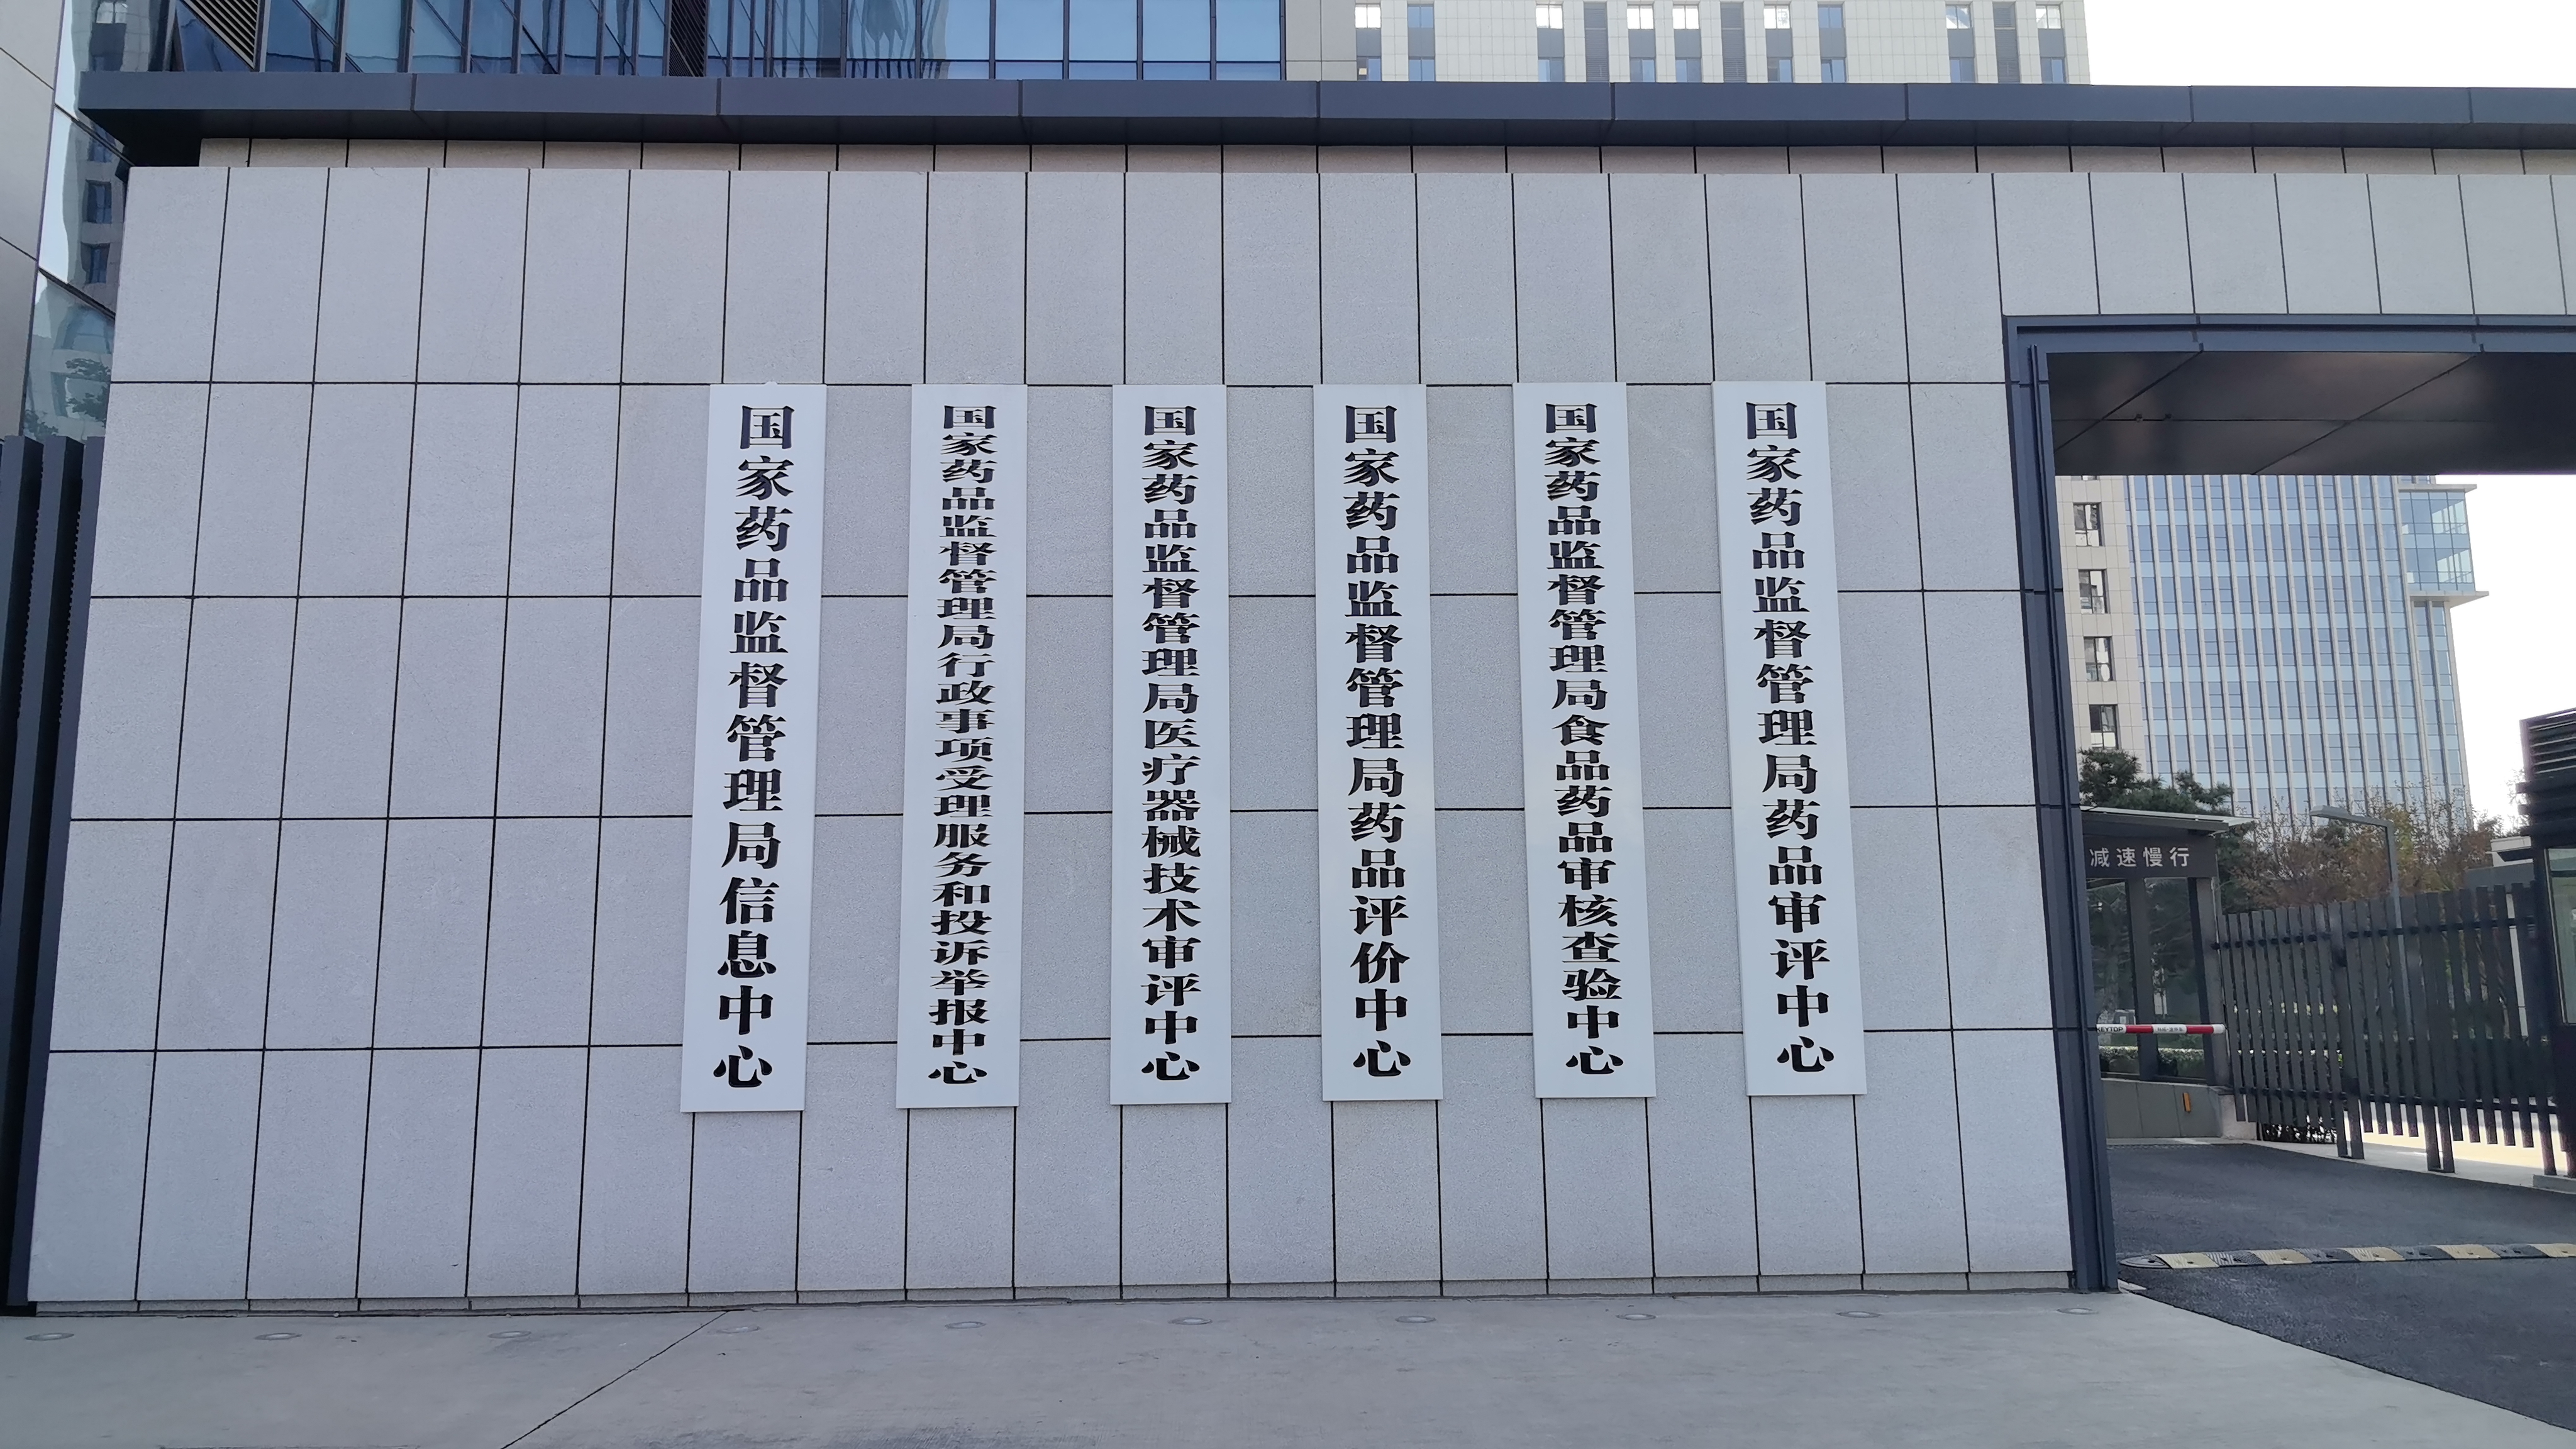 国家药品监督管理局信息中心
国家药品监督管理局行政事项受理服务和投诉举报中心
国家药品监督管理局医疗器械技术审评中心
国家药品监督管理局药品评价中心
国家药品监督管理局食品药品审核查验中心
国家药品监督管理局药品审评中心
减速慢行
KEYTOP